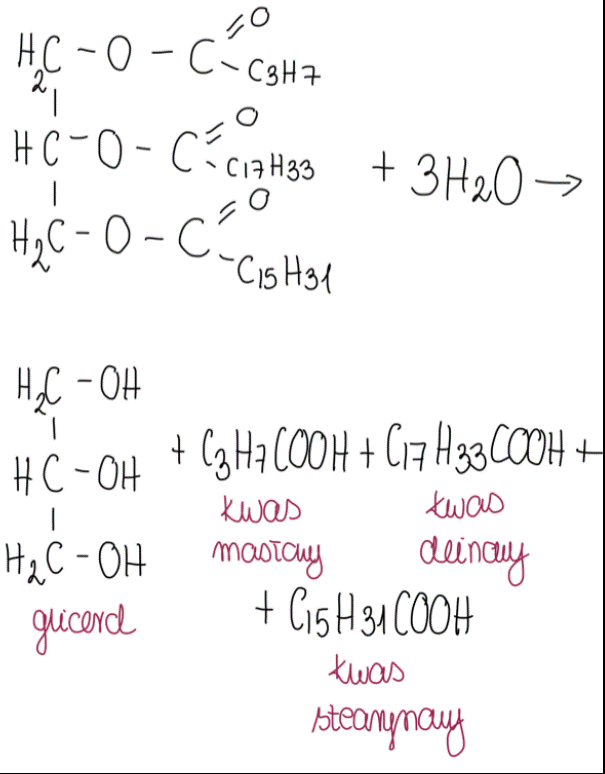 H₂C - O - C =O - C3H7
HC - O - C =O - C17H33 + 3H₂O →
H₂C - O - C =O - C15H31
H₂C - OH
HC - OH + C₃H₇COOH + C17H33COOH +
H₂C - OH
kwas kwas
masłowy oleinowy
glicerol + C15H31COOH
kwas
stearynowy